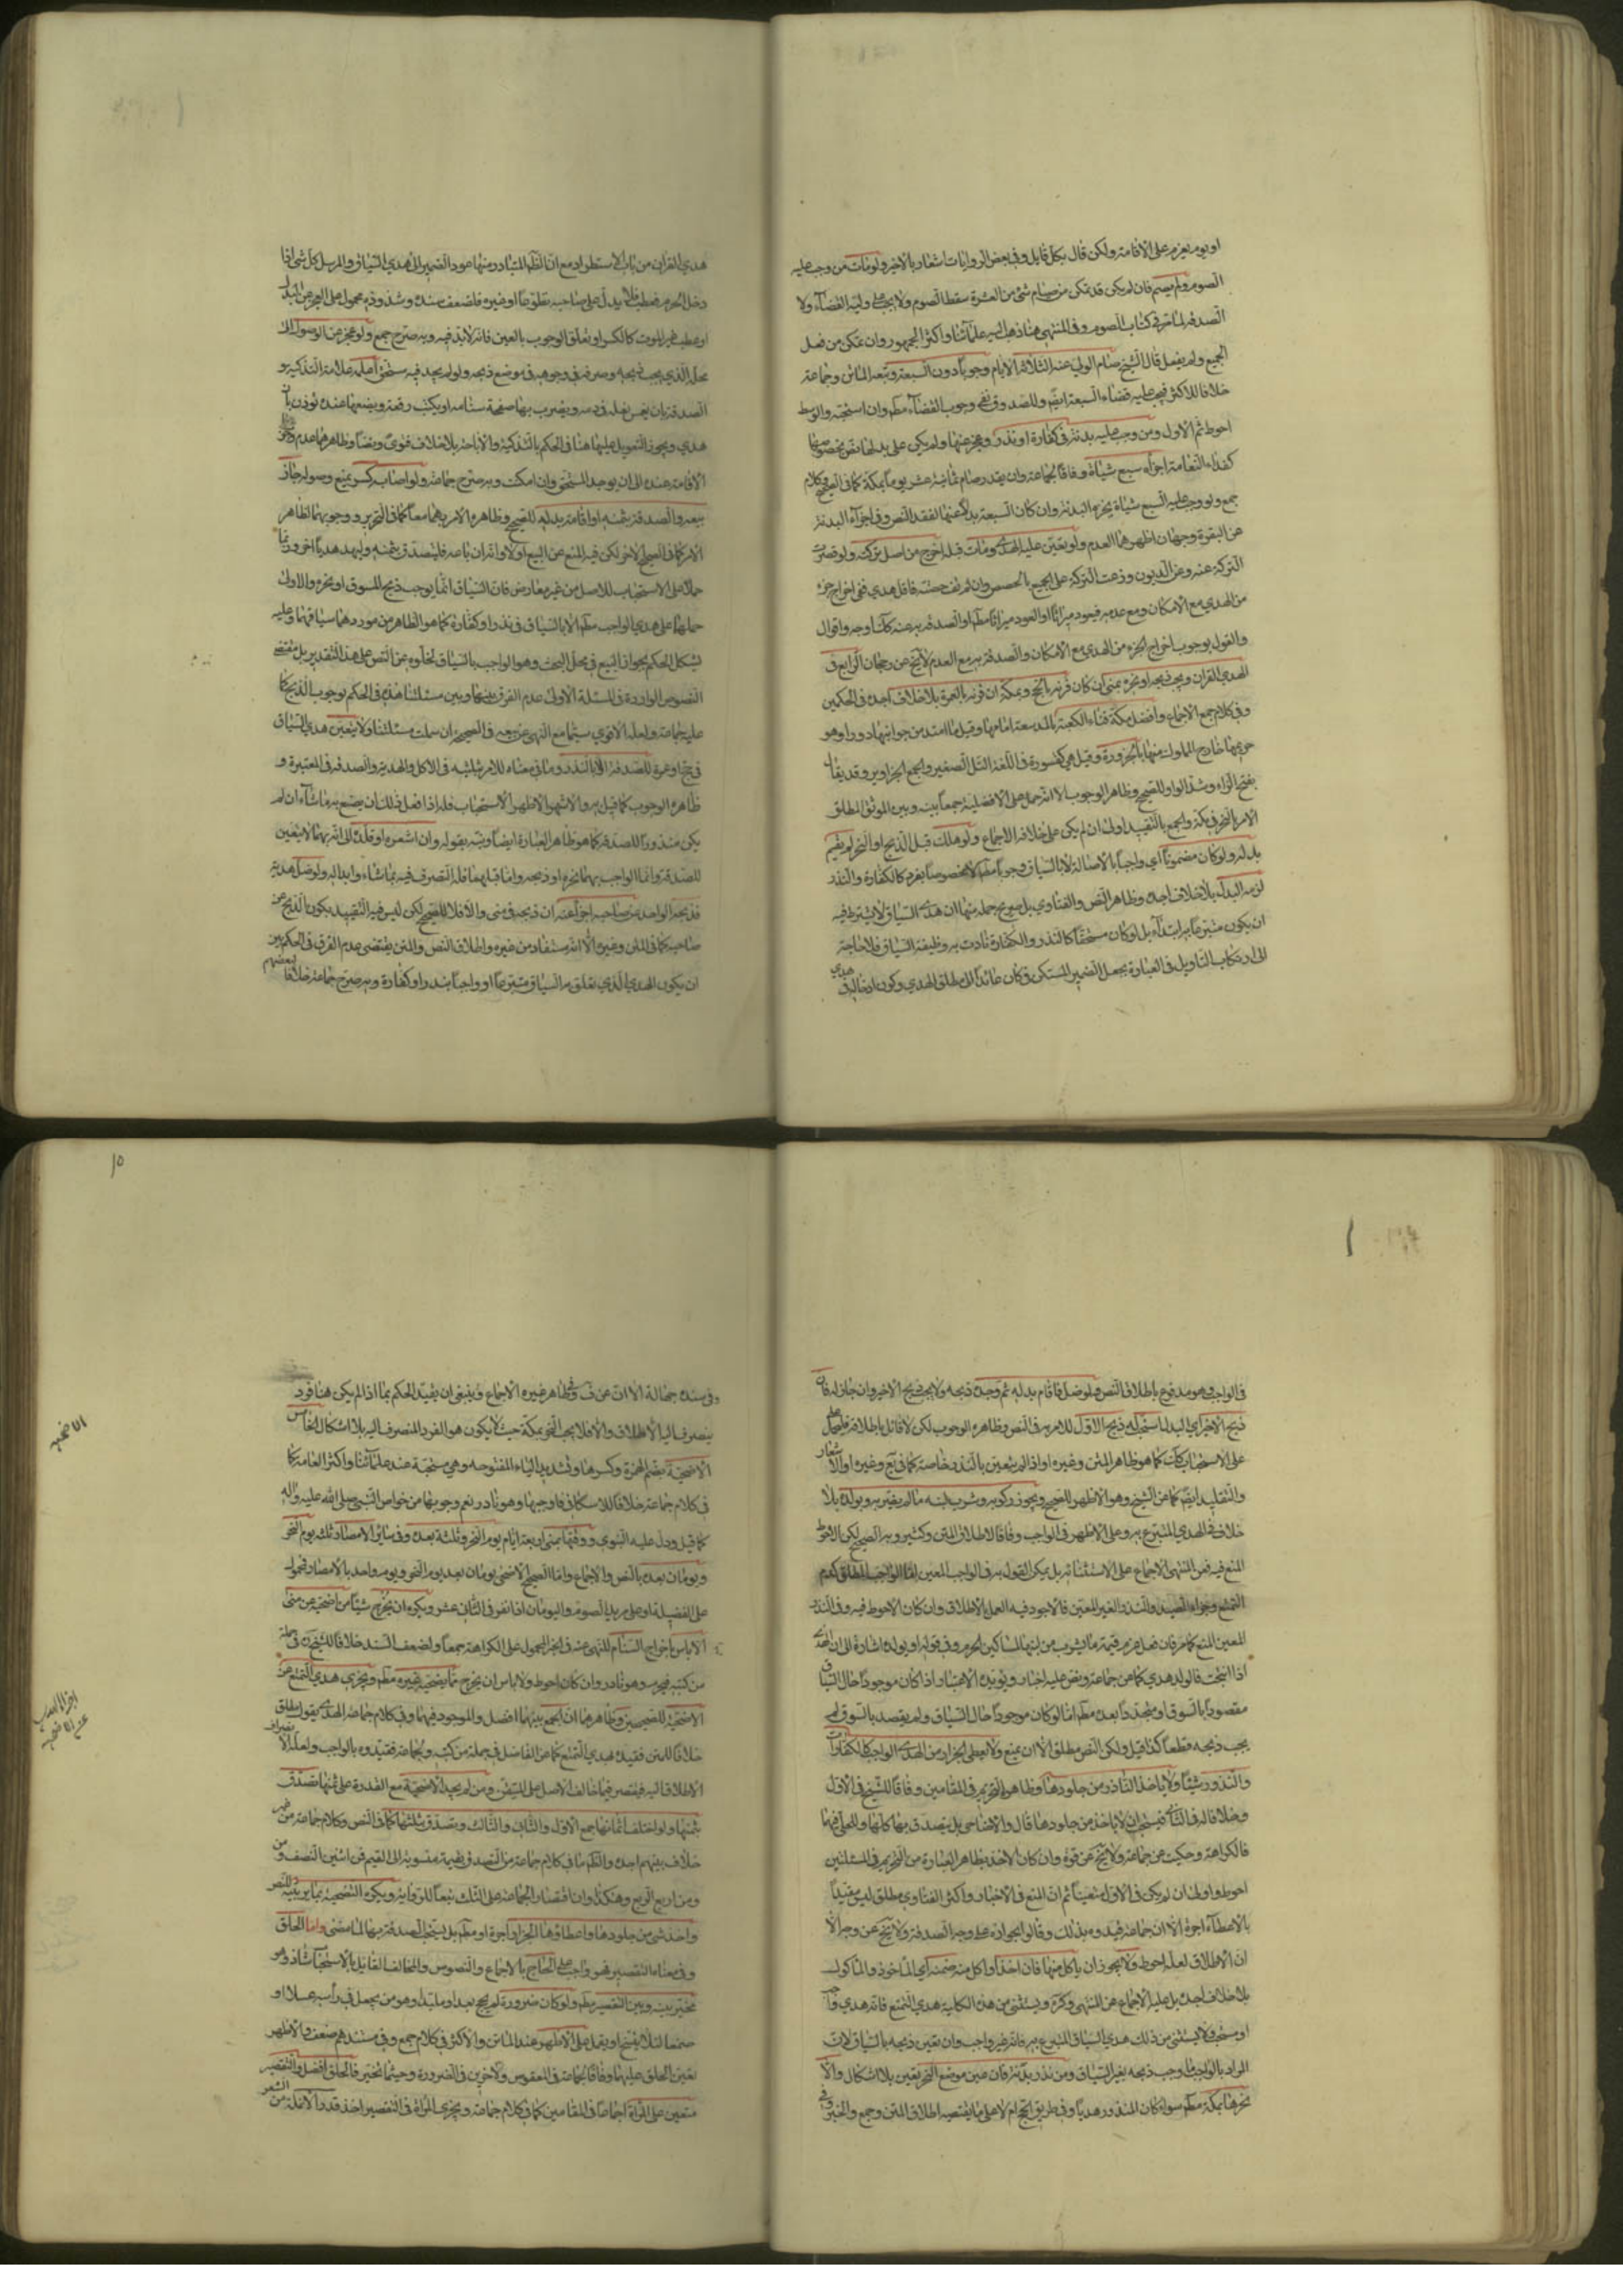 او يوم يعزم على الاقامة ولكن قال بكل قايل وفي بعض الروايات اشعار بالاخير ولو مات من وجب عليه
الصوم ولم يصم فان لم يكن قد تمكن من صيام شئ من العشرة سقط الصوم ولا يجب على وليه القضاء ولا
الصدقة لما مر في كتاب الصوم وفي المنتهى هنا ذهب اليه علمائنا واكثر الجمهور وان تمكن من فعل
الجميع ولم يفعل قال الشيخ صام الولي عنه الثلاثة الايام وجوبا دون السبعة وتبعه الماتن وجماعة
خلافا للاكثر فيجب عليه قضاء السبعة ايضا وللصدوق نفى وجوب القضاء مطم وان استحبه والوسط
احوط ثم الاول ومن وجب عليه بدنة في كفارة او نذر وعجز عنها ولم يكن على بدلها نص بخصوصها
كفداء النعامة اجزاه سبع شياة وفاقا لجماعة وان تعذر صام ثمانية عشر يوما بمكة كما في الصحيح وكلام
جمع ولو وجب عليه السبع شياة لم يجزه البدنة وان كان السبعة بدلا عنها لفقد النص وفي اجزاء البدنة
عن البقرة وجهان اظهرهما العدم ولو تعين عليه الهدي ومات قبله اخرج من اصل تركته ولو قصرت
التركة عنه وعن الديون وزعت التركة على الجميع بالحصص وان لم تف حصته فاقل هدي ففي اخراج جزء
من الهدي مع الامكان ومع عدمه فيعود ميراثا او العود ميراثا مطم او الصدقة به عنه كك اوجه واقوال
والقول بوجوب اخراج الجزء من الهدي مع الامكان والصدقة به مع العدم لا يخ عن رجحان الرابع في
الهدي القران ويجب ذبحه او نحره بمنى ان كان قرنه بالحج وبمكة ان قرنه بالعمرة بلا خلاف اجده في الحكمين
وفي كلام جمع الاجماع وافضل مكة فناء الكعبة بالمد سعة امامها وقيل ما امتد من جوانبها دورا وهو
حريمها خارج المملوك منها بالحزورة وقيل هي كقسورة في اللغة التل الصغير والجمع الحزاوير وقد يقال
بفتح الزاء وشد الواو للصحيح وظاهر الوجوب الا انه حمل على الافضلية جمعا بينه وبين الموثق المطلق
الامر بالنحر في مكة والجمع بالتقييد اولى ان لم يكن على خلافه الاجماع ولو هلك قبل الذبح او النحر لم يقم
بدله ولو كان مضمونا اي واجبا بالاصالة لا بالسياق وجوبا مطم لا مخصوصا بفرد كالكفارة والنذر
لزمه البدل بلا خلاف اجده وظاهر النص والفتاوي بل صريح جملة منها ان هدى السياق لا يشترط فيه
ان يكون متبرعا به ابتداء بل لو كان مستحقا كالنذر والكفارة تادت به وظيفة السياق فلا حاجة
الى ارتكاب التاويل في العبارة بجعل الضمير المستكن في كان عائدا الى مطلق الهدي وكون ادخاله في هدي
هدي القران من باب الاستطراد مع ان الظم المتبادر منها عود الضمير الى هدي السياق والمرسل كل شئ اذا
دخل الحرم فعطب فلا بدل على صاحبه تطوعا او غيره فلضعف سنده وشذوذه محمول على العجز عن البدل
او عطب غير الموت كالكسر او تعلق الوجوب بالعين فانه لا بدل فيه وبه صرح جمع ولو عجز عن الوصول الى
محله الذي يجب ذبحه وصرفه في وجوهه في موضع ذبحه ولو لم يجد فيه مستحق اعلمه علامة التذكية و
الصدقة بان يغمس نعله في دمه ويضرب بها صفحة سنامه او يكتب رقعة ويضعها عنده تؤذن بانه
هدي ويجوز التعويل عليها هنا في الحكم بالتذكية والاباحة بلا خلاف فتوى ونصا وظاهرهما عدم وجوب
الاقامة عنده الى ان يوجد المستحق وان امكنت وبه صرح جماعة ولو اصابه كسر يمنع وصوله جاز
بيعه والصدقة بثمنه او اقامة بدله للصحيح وظاهره الامر بهما معا كما في التحرير ووجوبهما لظاهر
الامر كما في الصحيح الاخر لكن فيه المنع عن البيع اولا وانه ان باعه فليتصدق بثمنه وليهد هديا اخر وربما
حملا على الاستحباب للاصل من غير معارض فان السياق انما يوجب ذبح المسوق او نحره والاولى
حملها على هدي الواجب مطم الا بالسياق في نذر او كفارة كما هو الظاهر من موردهما سياقهما وعليه
يشكل الحكم بجواز البيع في محل البحث وهو الواجب بالسياق لخلوه عن النص على هذا التقدير بل مقتضى
النصوص الواردة في المسئلة الاولى عدم الفرق بينها وبين مسئلتنا هذه في الحكم بوجوب الذبح كما
عليه جماعة ولعله الاقوى سيما مع النهي عن بيعه في الصحيح ان سلمت مسئلتنا ولا يتعين هدي السياق
في حج او عمرة للصدقة الا بالنذر وما في معناه للامر بتثليثه في الاكل والهدية والصدقة في المعتبرة و
ظاهره الوجوب كما قيل به والاشهر الاظهر الاستحباب فله اذا فعل ذلك ان يصنع به ما شاء ان لم
يكن منذورا للصدقة كما هو ظاهر العبارة ايضا ونبه بقوله وان اشعره او قلده الى انه بهما لا يتعين
للصدقة وانما الواجب بهما نحره او ذبحه واما قبلهما فله التصرف فيه بما شاء وابداله ولو ضل هديه
فذبحه الواجد عن صاحبه اجزا عنه ان ذبحه في منى والا فلا للصحيح لكن ليس فيه التقييد بكون الذبح عن
صاحبه كما في المتن وغيره الا انه مستفاد من غيره واطلاق النص والمتن يقتضي عدم الفرق في الحكم بين
ان يكون الهدي الذي تعلق به السياق متبرعا او واجبا بنذر او كفارة وبه صرح جماعة خلافا لبعضهم
في الواجب وهو مدفوع باطلاق النص ولو ضل فاقام بدله ثم وجده ذبحه ولا يجب ذبح الاخير وان جاز له فان
ذبح الاخير اي البدل استحب له ذبح الاول للامر به في النص وظاهره الوجوب لكن لا قائل باطلاقه فليحمل
على الاستحباب كك كما هو ظاهر المتن وغيره او اذا لم يتعين بالنذر خاصة كما في يع وغيره او الاشعار
والتقليد ايضا كما عن الشيخ وهو الاظهر للصحيح ويجوز ركوبه وشرب لبنه ما لم يضر به وبولده بلا
خلاف في الهدي المتبرع به وعلى الاظهر في الواجب وفاقا لاطلاق المتن وكثير وبه الصحيح لكن الاحوط
المنع فيه فعن المنتهى الاجماع على الاستثناء به بل يمكن القول به في الواجب المعين اما الواجب المطلق كدم
التمتع وجزاء الصيد والنذر الغير المعين فالاجود فيه العمل بالاطلاق وان كان الاحوط فيه وفي النذر
المعين المنع كما مر فان فعل غرم قيمة ما يشرب من لبنها لمساكين الحرم وفي قوله او بولده اشارة الى ان الهدي
اذا انتجت فالولد هدي كما عن جماعة ونص عليه اخبار ويؤيده الاعتبار اذا كان موجودا حال السياق
مقصودا بالسوق او متجددا بعده مطم اما لو كان موجودا حال السياق ولم يقصد بالسوق لم
يجب ذبحه قطعا كذا قيل ولكن النص مطلق الا ان يمنع ولا يعطى الجزار من الهدي الواجب كالكفارات
والنذور شيئا ولا ياخذ الناذر من جلودها وظاهره التحريم في المقامين وفاقا للشيخ في الاول
وخلافا له في الثاني فيستحب ان لا ياخذ من جلودها قال والاضاحي بل يتصدق بها كلها وللحلي فيهما
فالكراهة وحكيت عن جماعة ولا يخ عن قوة وان كان الاخذ بظاهر العبارة من التحريم في المسئلتين
احوط واولى ان لم يكن في الاول متعينا ثم ان المنع في الاخبار واكثر الفتاوي مطلق ليس مقيدا
بالاعطاء اجرة الا ان جماعة قيدوه بذلك وقالوا بجوازه على وجه الصدقة ولا يخ عن وجه الا
ان الاطلاق لعله احوط ولا يجوز ان ياكل منها فان اخذ او اكل منه ضمنه اي الماخوذ والماكول
بلا خلاف اجده بل عليه الاجماع عن المنتهى وكره ويستثنى من هذه الكلية هدي التمتع فانه هدي واجب
او مستحب ولا يستثنى من ذلك هدي السياق المتبرع به فانه غير واجب وان تعين ذبحه بالسياق لان
المراد بالواجب ما وجب ذبحه بغير السياق ومن نذر بدنة فان عين موضع النحر تعين بلا اشكال والا
نحرها بمكة مطم سواء كان المنذور هديا وفي طريق الحج ام لا على ما يقتضيه اطلاق المتن وجمع والخبر وفي
وفي سنده جهالة الا ان عن ف وظاهر غيره الاجماع وينبغي ان يقيد الحكم بما اذا لم يكن هنا فرد
ينصرف اليه الاطلاق والا فلا يجب النحر بمكة حيث لا يكون هو الفرد المنصرف اليه بلا اشكال الخامس
الاضحية بضم الهمزة وكسرها وتشديد الياء المفتوحه وهي مستحبة عند علمائنا واكثر العامة كما
في كلام جماعة خلافا للاسكافي فاوجبها وهو نادر نعم وجوبها من خواص النبي صلى الله عليه واله
كما قيل ودل عليه النبوي ووقتها بمنى اربعة ايام يوم النحر وثلثة بعده وفي سائر الامصار ثلثة يوم النحر
ويومان بعده بالنص والاجماع واما الصحيح الاضحى يومان بعد يوم النحر ويوم واحد بالامصار فمحمول
على الفضيلة او على مريد الصوم واليومان اذا نفر في الثاني عشر ويكره ان يخرج شيئا من اضحيته عن منى
الا باس باخراج السنام للنهي عنه في الخبر المحمول على الكراهة جمعا ولضعف السند خلافا للشيخ في جملة
من كتبه فيحرم وهو نادر وان كان احوط ولا باس ان يخرج مما يضحيه غيره مطم ويجزي هدي التمتع عن
الاضحية للصحيحين وظاهرهما ان الجمع بينهما افضل والموجود فيهما وفي كلام جماعة الهدي بقول مطلق
خلافا للمتن فقيده بهدي التمتع كما عن الفاضل في جملة من كتبه ولجماعة فقيدوه بالواجب ولعله لانصراف
الاطلاق اليه فيقتصر فيما خالف الاصل على المتيقن ومن لم يجد الاضحية مع القدرة على ثمنها تصدق
بثمنها ولو اختلف اثمانها جمع الاول والثاني والثالث ويتصدق بثلثها كما في النص وكلام جماعة من غير
خلاف بينهم اجده والظم ما في كلام جماعة من التصدق بقيمة منسوبة الى القيم فمن اثنين النصف ومن
ومن اربع الربع وهكذا وان اقتصار الجماعة على الثلث تبعا للرواية ويكره التضحية بما يربيه للنص
واخذ شئ من جلودها واعطاؤها الجزار اجرة او مطم بل يستحب الصدقة بها لما مضى واما الحلق
وفي معناه التقصير فهو واجب على الحاج بالاجماع والنصوص والمخالف القائل بالاستحباب شاذ وهو
مخير بينه وبين التقصير مطم ولو كان صرورة لم يحج بعد او ملبدا وهو من يجعل في راسه عسلا او
صمغا لئلا يتسخ او يقمل على الاظهر عند الماتن والاكثر في كلام جمع وفي مستندهم ضعف والاظهر
تعين الحلق عليهما وفاقا لجماعة في المعقوس ولاخرين في الصرورة وحيثما تخير فالحلق افضل والتقصير
متعين على المراة اجماعا في المقامين كما في كلام جماعة ويجزي المراة في التقصير اخذ قدر الانملة من الشعر
١٥
الاضحية
اجزاء الهدي
عن الاضحية